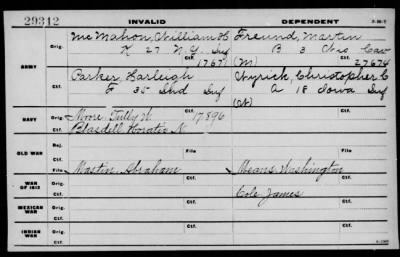 29312 INVALID DEPENDENT 3-60-9
ARMY
Orig. McMahon, William H Freund, Martin
K 27 N.Y. Inf B 3 Cav
Ctf. 1767 (M) 27674
Orig. Parker, Harleigh Myrick, Christopher C
F 35 Ind Inf A 18 Iowa Inf
Ctf. (N)
NAVY
Orig. Moore, Tully W. Ctf. 17896 Ctf.
Blasdell Horatio N
OLD WAR
Rej.
Ctf. File File
WAR OF 1812
Orig. Mastin, Abraham Means, Washington
Ctf. Ctf. Cole James
MEXICAN WAR
Orig.
Ctf. Ctf.
INDIAN WAR
Orig.
Ctf. Ctf.